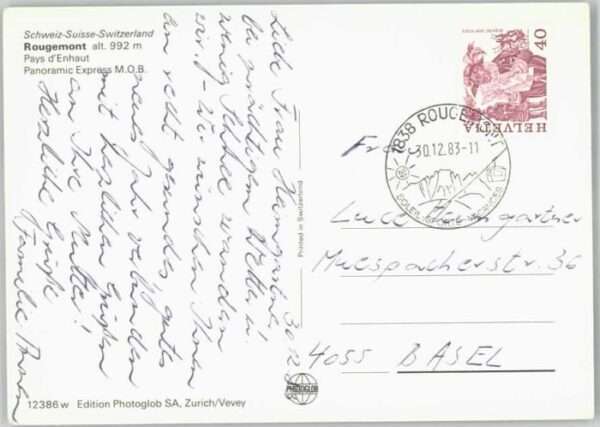 Schweiz-Suisse-Switzerland
Rougemont alt. 992 m
Pays d'Enhaut
Panoramic Express M.O.B.
30.12.83
Liebe Frau Heimgartner
bei prächtigem Wetter u.
wenig Schnee wandern
wir! - Wir wünschen Ihnen
ein recht gesundes, gutes
neues Jahr verbunden
mit herzlichen Grüssen
an Ihre Mutter!
Herzliche Grüße
Familie
Printed in Switzerland
HELVETIA
40
1838 ROUGEMONT
30.12.83-11
Luce Heimgartner
Muespacherstr. 36
4055 BASEL
PHOTOGLOB
12386 w Edition Photoglob SA, Zurich/Vevey